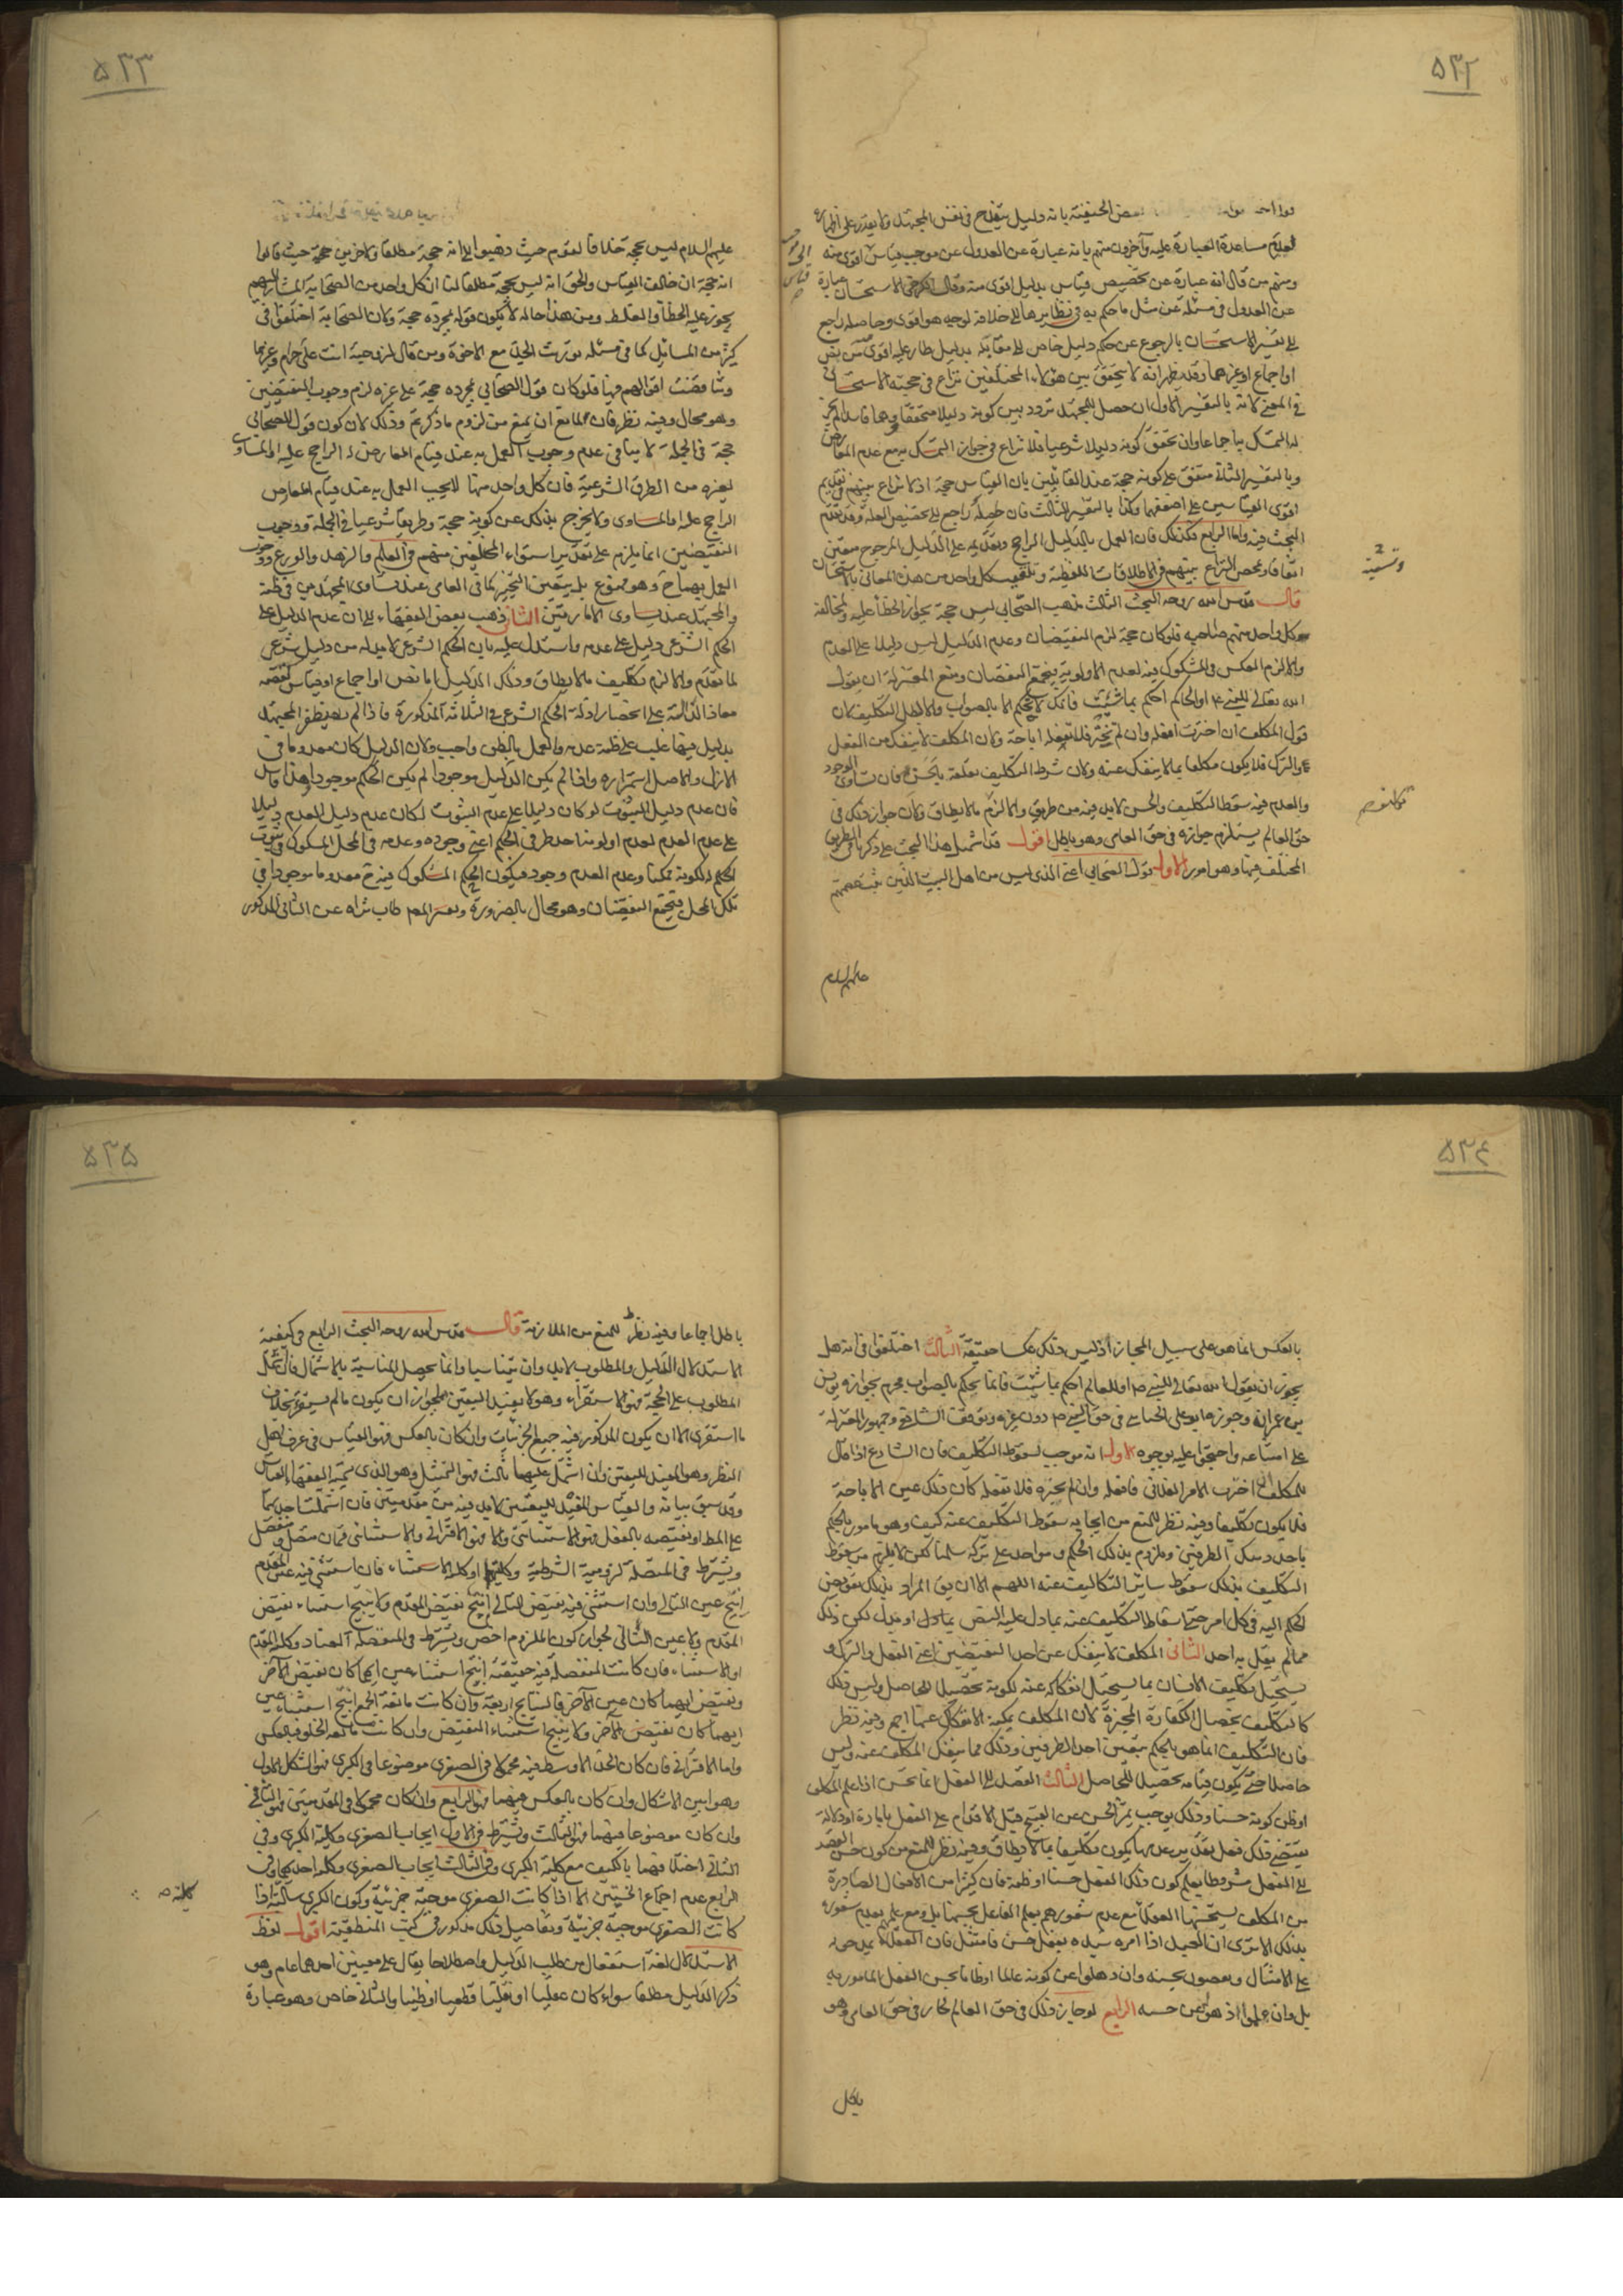 ٥٣٢
بعض الحنفية بانه دليل ينقدح فى نفس المجتهد ولا يقدر على اظهاره
لعدم مساعدة العبارة عليه وآخرون منهم بانه عبارة عن العدول عن موجب قياس اقوى منه
ومنهم من قال انه عبارة عن تخصيص قياس بدليل اقوى منه وقال الكرخى الاستحسان عبارة
عن العدول فى مسئلة عن مثل ما حكم به فى نظايرها الى خلافه لوجه هو اقوى وحاصله راجع
الى تفسير الاستحسان بالرجوع عن حكم دليل خاص الى مقابله بدليل طار عليه اقوى من نص
او اجماع او غيرهما وقد يظهر انه لا يتحقق بين هؤلاء المختلفين نزاع فى حجية الاستحسان
فى المعنى لانه بالتفسير الاول ان حصل للمجتهد تردد بين كونه دليلا متحققا ووهما فاسدا لم يجز
له التمسك به اجماعا وان تحقق كونه دليلا شرعيا فلا نزاع فى جواز التمسك به مع عدم المعارض
وبالتفسير الثانى متفق على كونه حجة عند القايلين بان القياس حجة اذ لا نزاع بينهم فى تقديم
اقوى القياسين على اضعفهما وكذا بالتفسير الثالث فان حاصله راجع الى تخصيص العلة وقد تقدم
البحث فيه واما الرابع فكذلك فان العمل بالدليل الراجح وتقديمه على الدليل المرجوح متعين
اتفاقا ومحصل النزاع بينهم فى الاطلاقات اللفظية وتلقيب كل واحد من هذه المعانى بالاستحسان
قال قدس الله روحه البحث الثالث مذهب الصحابى ليس حجة لجواز الخطأ عليه ولمخالفة
كل واحد منهم صاحبه فلو كان حجة لزم النقيضان وعدم الدليل ليس دليلا على العدم
والا لزم العكس فى المشكوك فيه لعدم الاولوية فيجتمع النقيضان ومنع المعتزلة ان يقول
الله تعالى للنبى ع او الحاكم احكم بما شئت فانك لا تحكم الا بالصواب والا لبطل التكليف لان
قول المكلف ان اخترت افعله وان لم تختر فلا تفعله اباحة ولان المكلف لا ينفك من الفعل
والترك فلا يكون مكلفا بما لا ينفك عنه ولان شرط التكليف تعلقه بالحسن فان تساوى الوجود
والعدم فيه سقط التكليف والحسن لا بد فيه من طريق والا لزم ما لا يطاق ولان جواز ذلك فى
حق العالم يستلزم جوازه فى حق العامى وهو باطل اقول قد اشتمل هذا البحث على ذكر باقى الطريق
المختلف فيها وهو امور الاول قول الصحابى اعنى الذى ليس من اهل البيت الذين ثبتت عصمتهم
عليهم السلام
٥٣٣
عليهم السلام ليس بحجة خلافا لقوم حيث ذهبوا الى انه حجة مطلقا ولاخرين حجة حيث قالوا
انه حجة ان خالف القياس والحق انه ليس بحجة مطلقا لنا ان كل واحد من الصحابة المشار اليهم
يجوز عليه الخطأ والغلط ومن هذا حاله لا يكون قوله بمجرده حجة ولان الصحابة اختلفوا فى
كثير من المسائل كما فى مسئلة توريث الجد مع الاخوة ومن قال لزوجته انت على حرام وغيرهما
وتناقضت اقوالهم فيها فلو كان قول الصحابى بمجرده حجة على غيره لزم وجوب النقيضين
وهو محال وفيه نظر فان للمانع ان يمنع من لزوم ما ذكرتم وذلك لان كون قول الصحابى
حجة فى الجملة لا ينافى عدم وجوب العمل به عند قيام المعارض له الراجح عليه او المساوى
لغيره من الطرق الشرعية فان كل واحد منها لا يجب العمل به عند قيام المعارض
الراجح عليه او المساوى ولا يخرج بذلك عن كونه حجة وطريقا شرعيا فى الجملة ووجوب
النقيضين انما يلزم على تقدير استواء المختلفين منهم فى العلم والزهد والورع ووجوب
العمل بهما ح وهو ممنوع بل يتعين التخيير كما فى العامى عند تساوى المجتهدين فى ظنه
والمجتهد عند تساوى الامارتين الثانى ذهب بعض الفقهاء الى ان عدم الدليل على
الحكم الشرعى دليل على عدمه واستدل عليه بان الحكم الشرعى لا بد له من دليل شرعى
لما تقدم والا لزم تكليف ما لا يطاق وذلك الدليل اما نص او اجماع او قياس لقصة
معاذ الدالة على انحصار ادلة الحكم الشرعى فى الثلاثة المذكورة فاذا لم يظفر المجتهد
بدليل منها غلب على ظنه عدمه والعمل بالظن واجب ولان الدليل كان معدوما فى
الازل والاصل استمراره واذا لم يكن الدليل موجودا لم يكن الحكم موجودا وهذا فاسد
فان عدم دليل الثبوت لو كان دليلا على عدم الثبوت لكان عدم دليل العدم دليلا
على عدم العدم لعدم اولوية احد طرفى الحكم اعنى وجوده وعدمه فى المحل المشكوك فى ثبوت
الحكم له لكونه ممكنا وعدم العدم وجود فيكون الحكم المشكوك فيه ح معدوما موجودا فى
ذلك المحل فيجتمع النقيضان وهو محال بالضرورة وتعبير المص طاب ثراه عن الثانى المذكور
٥٣٤
بالعكس انما هو على سبيل المجاز اذ ليس ذلك عكسا حقيقة الثالث اختلفوا فى انه هل
يجوز ان يقول الله تعالى للنبى ص او للعالم احكم بما شئت فانما تحكم بالصواب فجزم بجوازه يونس
بن عمران وجوزه ابو على الجبائى فى حق النبى ص دون غيره وتوقف الشافعى وجمهور المعتزلة
على امتناعه واحتجوا عليه بوجوه الاول انه موجب لسقوط التكليف فان الشارع اذا قال
للمكلف ان اخترت الامر الفلانى فافعله وان لم تختره فلا تفعله كان ذلك عين الاباحة
فلا يكون تكليفا وفيه نظر للمنع من ايجابه سقوط التكليف عنه كيف وهو مامور بالحكم
باحد ذينك الطرفين وملزوم بذلك الحكم ومؤاخذ على تركه سلمنا لكن لا يلزم من سقوط
التكليف بذلك سقوط سائر التكاليف عنه اللهم الا ان يق المراد بذلك تفويض
الحكم اليه فى كل امر حتى اسقاط التكليف عنه بما دل عليه النص بما دل او قيل لكن ذلك
مما لم يقل به احد الثانى المكلف لا ينفك عن احد النقيضين اعنى الفعل والترك و
يستحيل تكليف الانسان بما يستحيل انفكاكه عنه لكونه تحصيلا للحاصل وليس ذلك
كالتكليف بخصال الكفارة المخيرة لان المكلف يمكنه الانفكاك عنها اجمع وفيه نظر
فان التكليف انما هو بالحكم بتعيين احد الطرفين وذلك مما ينفك المكلف عنه وليس
حاصلا حتى يكون قيامه تحصيلا للحاصل الثالث القصد الى الفعل انما يحسن اذا علم المكلف
او ظن كونه حسنا وذلك يوجب تميز الحسن عن القبيح قبل الاقدام على الفعل بامارة او دلالة
تقتضى ذلك فعلى تقدير عدمها يكون تكليفا بما لا يطاق وفيه نظر للمنع من كون حسن القصد
الى الفعل مشروطا بعلم كون ذلك الفعل حسنا او ظنه فان كثيرا من الافعال الصادرة
من المكلف يستحسنها العقلاء مع عدم شعورهم بعلم الفاعل بحسنها بل ومع علمهم بعدم شعوره
بذلك الا ترى ان العبد اذا امره سيده بفعل حسن فامتثل فان العقلاء يمدحونه
على الامتثال ويصفون بحسنه وان ذهلوا عن كونه عالما او ظانا بحسن الفعل المامور به
بل وان علموا ذهوله عن حسنه الرابع لو جاز ذلك فى حق العالم لجاز فى حق العامى وهو
باطل
٥٣٥
باطل اجماعا وفيه نظر للمنع من الملازمة قال قدس الله روحه البحث الرابع فى كيفية
الاستدلال الدليل والمطلوب لا بد وان يتناسبا وانما يحصل المناسبة بالاشتمال فان اشتمل
المطلوب على الحجة فهو الاستقراء وهو لا يفيد اليقين لجواز ان يكون ما لم يستقرئ بخلاف
ما استقرئ الا ان يكون المذكور فيه جميع الجزئيات وان كان بالعكس فهو القياس فى عرف اهل
النظر وهو المفيد لليقين وان اشتمل عليهما ثالث فهو التمثيل وهو الذى يسميه الفقهاء القياس
وقد سبق بيانه والقياس المفيد لليقين لا بد فيه من مقدمتين فان اشتملت احديهما
على المط او نقيضه بالفعل فهو الاستثنائى والا فهو الاقترانى والاستثنائى قسمان متصل ومنفصل
ويشترط فى المتصلة لزومية الشرطية وكليتها او كلية الاستثناء فان استثنى فيه عين المقدم
انتج عين التالى وان استثنى فيه نقيض التالى انتج نقيض المقدم ولا ينتج استثناء نقيض
المقدم ولا عين التالى لجواز كون الملزوم اخص ويشترط فى المنفصلة العناد وكلية المقدم
او الاستثناء فان كانت المنفصلة فيه حقيقة انتج استثناء عين ايهما كان نقيض الآخر
ونقيض ايهما كان عين الآخر فالنتايج اربعة وان كانت مانعة الجمع انتج استثناء عين
ايهما كان نقيض الآخر ولا ينتج استثناء النقيض وان كانت مانعة الخلو فبالعكس
واما الاقترانى فان كان الحد الاوسط فيه محمولا فى الصغرى موضوعا فى الكبرى فهو الشكل الاول
وهو ابين الاشكال وان كان بالعكس فيهما فهو الرابع وان كان محمولا فى المقدمتين فهو الثانى
وان كان موضوعا فيهما فهو الثالث ويشترط فى الاول ايجاب الصغرى وكلية الكبرى وفى
الثانى اختلافهما بالكيف مع كلية الكبرى وفى الثالث ايجاب الصغرى وكلية احديهما وفى
الرابع عدم اجتماع الخستين الا اذا كانت الصغرى موجبة جزئية وكون الكبرى سالبة اذا
كلية ص
كانت الصغرى موجبة جزئية وتفاصيل ذلك مذكور فى كتب المنطقية اقول لفظ
الاستدلال لغة استفعال من طلب الدليل واصطلاحا يقال على معنيين احدهما عام وهو
ذكر الدليل مطلقا سواء كان عقليا او نقليا قطعيا او ظنيا والثانى خاص وهو عبارة